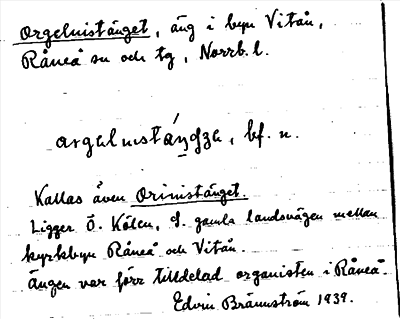 Orgelnistänget, äng i byn Vitån,
Råneå sn och tg, Norrb. l.
argelnistáŋʤa, bf. n.
Kallas även Orinistänget.
Ligger Ö. Kölen, S. gamla landsvägen mellan
kyrkbyn Råneå och Vitån.
Ängen var förr tilldelad organisten i Råneå.
Edvin Brännström 1939.